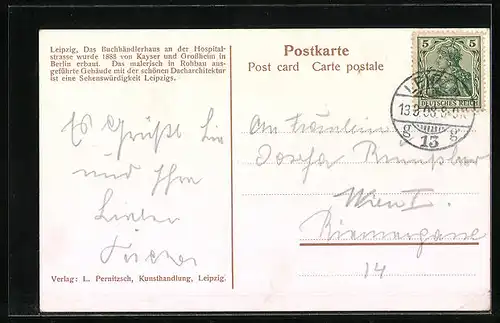 Leipzig, Das Buchhändlerhaus an der Hospital-
strasse wurde 1888 von Kayser und Großheim in
Berlin erbaut. Das malerisch in Rohbau aus-
geführte Gebäude mit der schönen Dacharchitektur
ist eine Sehenswürdigkeit Leipzigs.
Postkarte
Post card Carte postale
5 5
DEUTSCHES REICH
g 13 g
Es grüßt Sie
und Ihre
Lieben
An Fräulein
Josefa
Wien I.
Riemergasse
14
Verlag: L. Pernitzsch, Kunsthandlung, Leipzig.